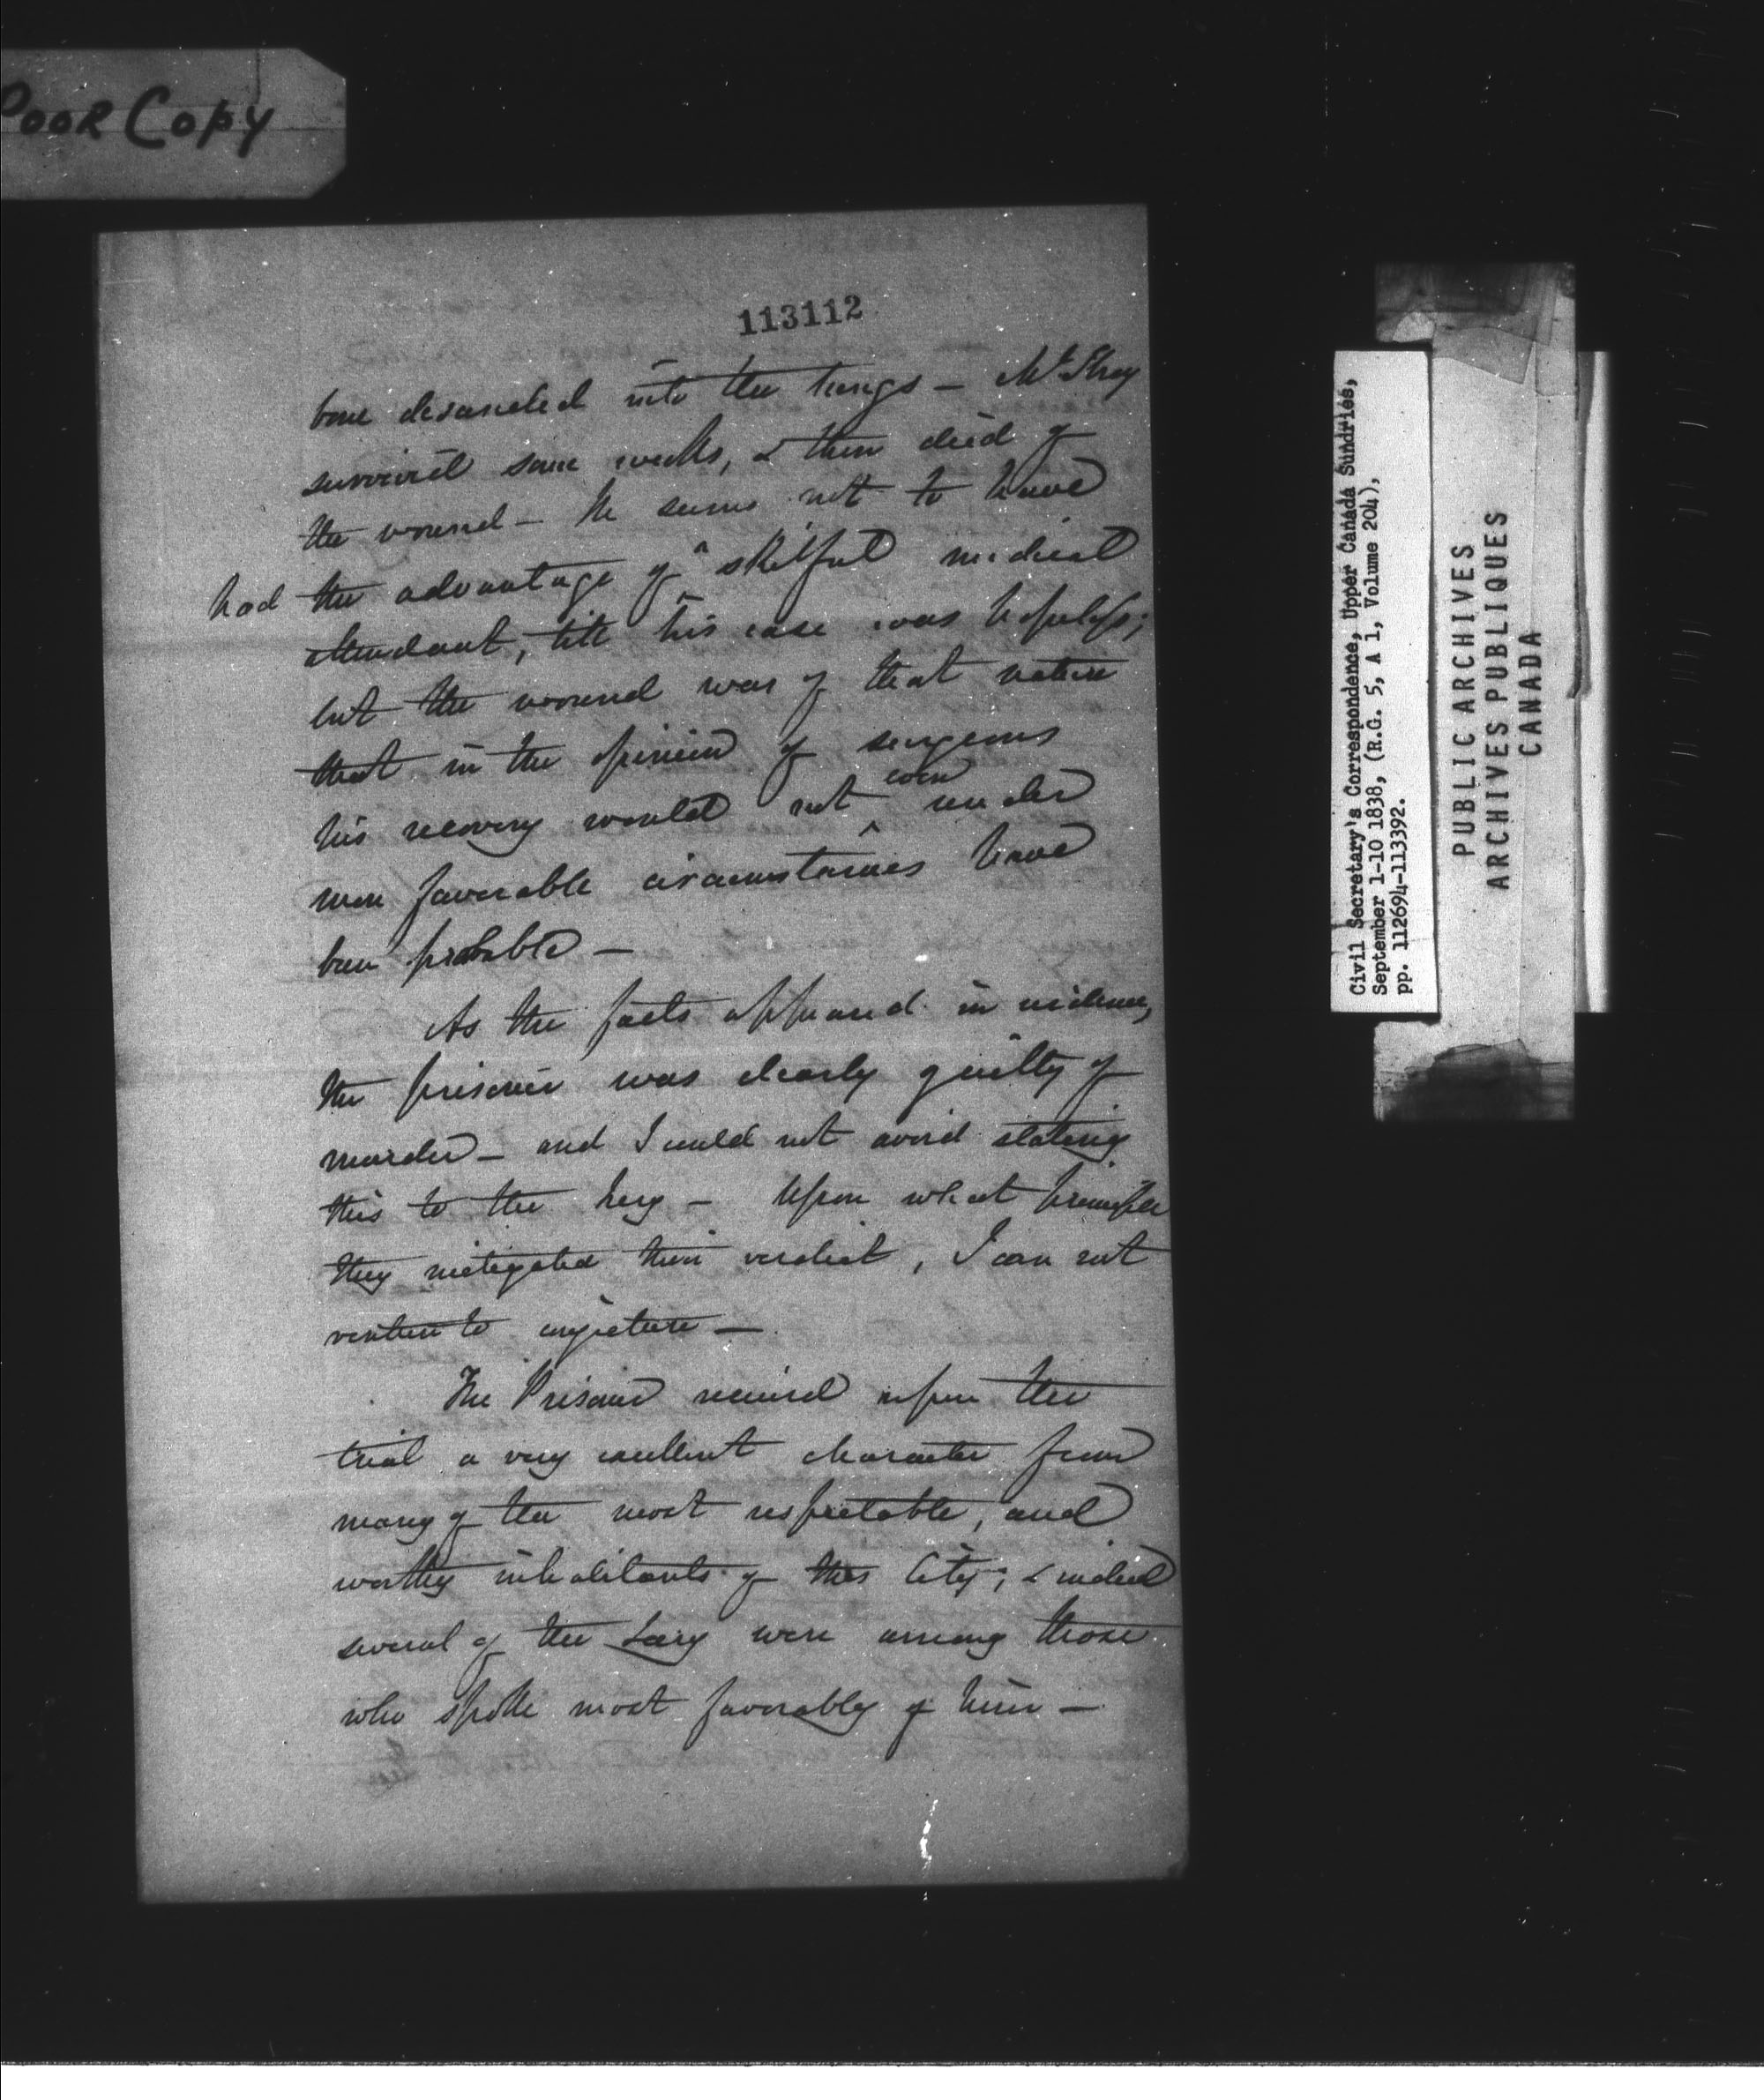 POOR COPY
113112
bone descended into the lungs — Mr
survived some weeks, & then died of
the wound — He seems not to have
had the advantage of a skilful medical
attendant, till his case was hopeless;
but the wound was of that nature
that in the opinion of surgeons
his recovery would not even under
more favorable circumstances have
been probable —
As the facts appeared in evidence,
the prisoner was clearly guilty of
murder — and I could not avoid stating
this to the Jury — Upon what principle
they mitigated their verdict, I can not
venture to conjecture —
The Prisoner received upon the
trial a very excellent character from
many of the most respectable, and
worthy inhabitants of this City; & indeed
several of the Jury were among those
who spoke most favorably of him —
Civil Secretary's Correspondence, Upper Canada Sundries,
September 1-10 1838, (R.G. 5, A 1, Volume 204),
pp. 112694-113392.
PUBLIC ARCHIVES
ARCHIVES PUBLIQUES
CANADA